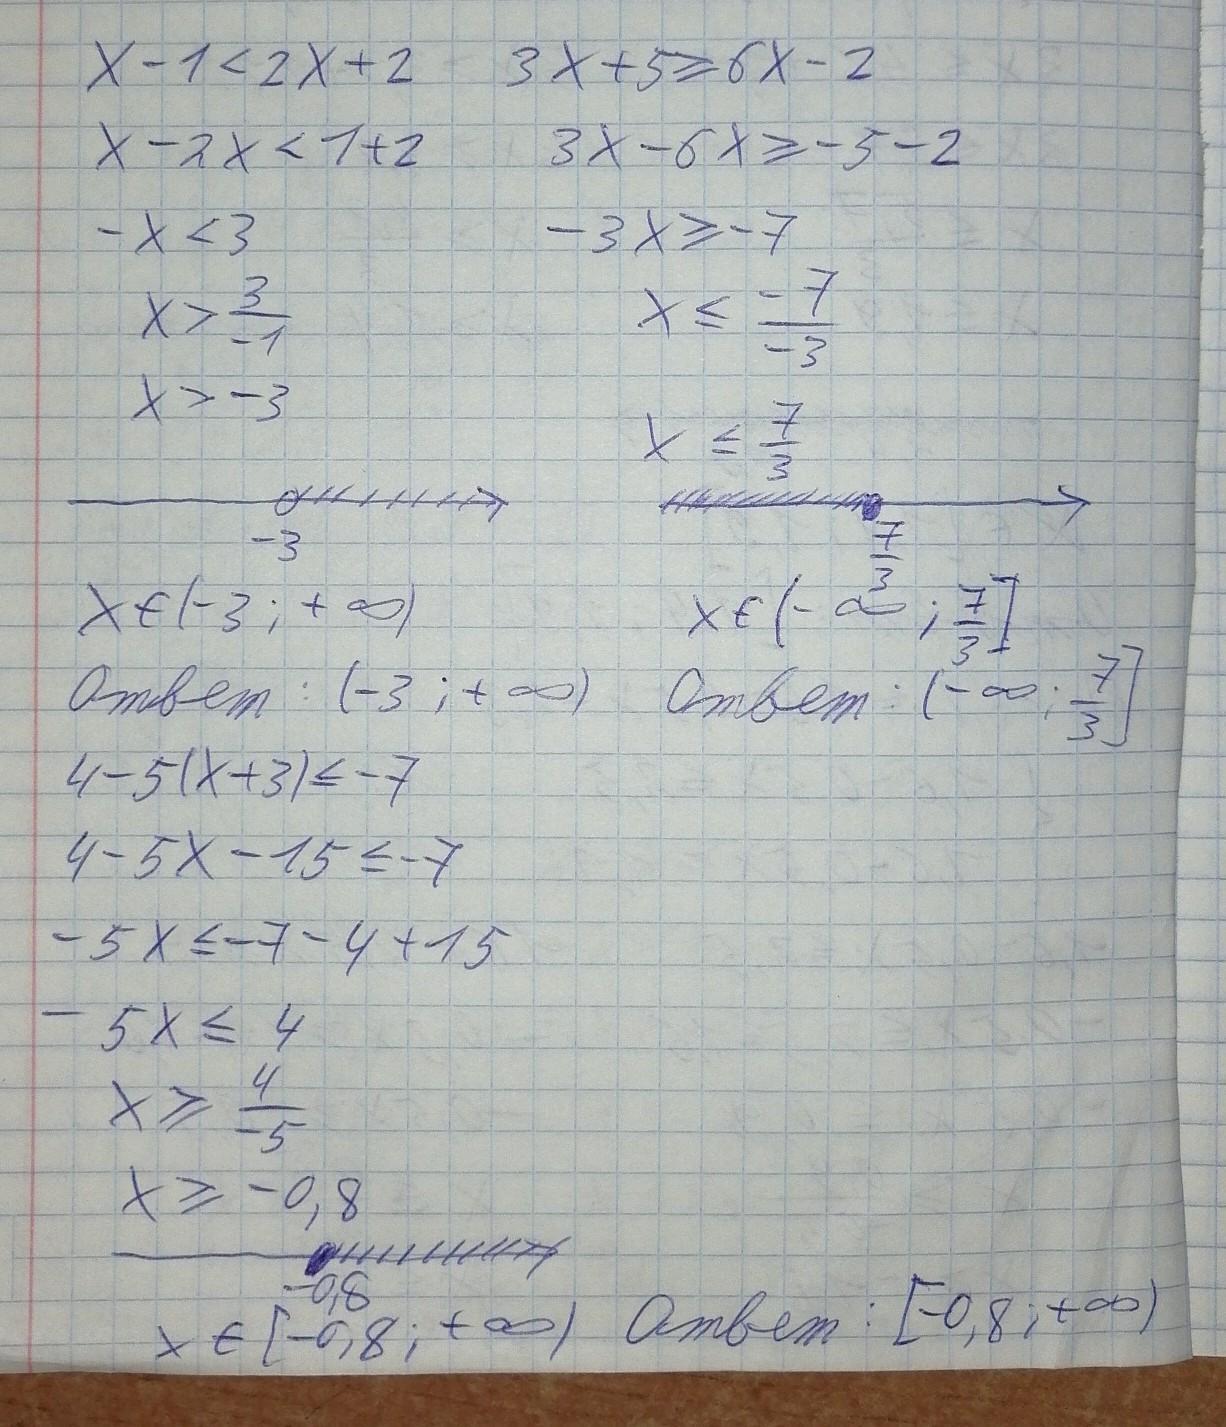 x-1<2x+2
x-2x<1+2
-x<3
x>3/-1
x>-3
-3
x∈(-3;+∞)
Ответ: (-3;+∞)
3x+5≥6x-2
3x-6x≥-5-2
-3x≥-7
x≤-7/-3
x≤7/3
7/3
x∈(-∞;7/3]
Ответ: (-∞;7/3]
4-5(x+3)≤-7
4-5x-15≤-7
-5x≤-7-4+15
-5x≤4
x≥4/-5
x≥-0,8
-0,8
x∈[-0,8;+∞) Ответ: [-0,8;+∞)